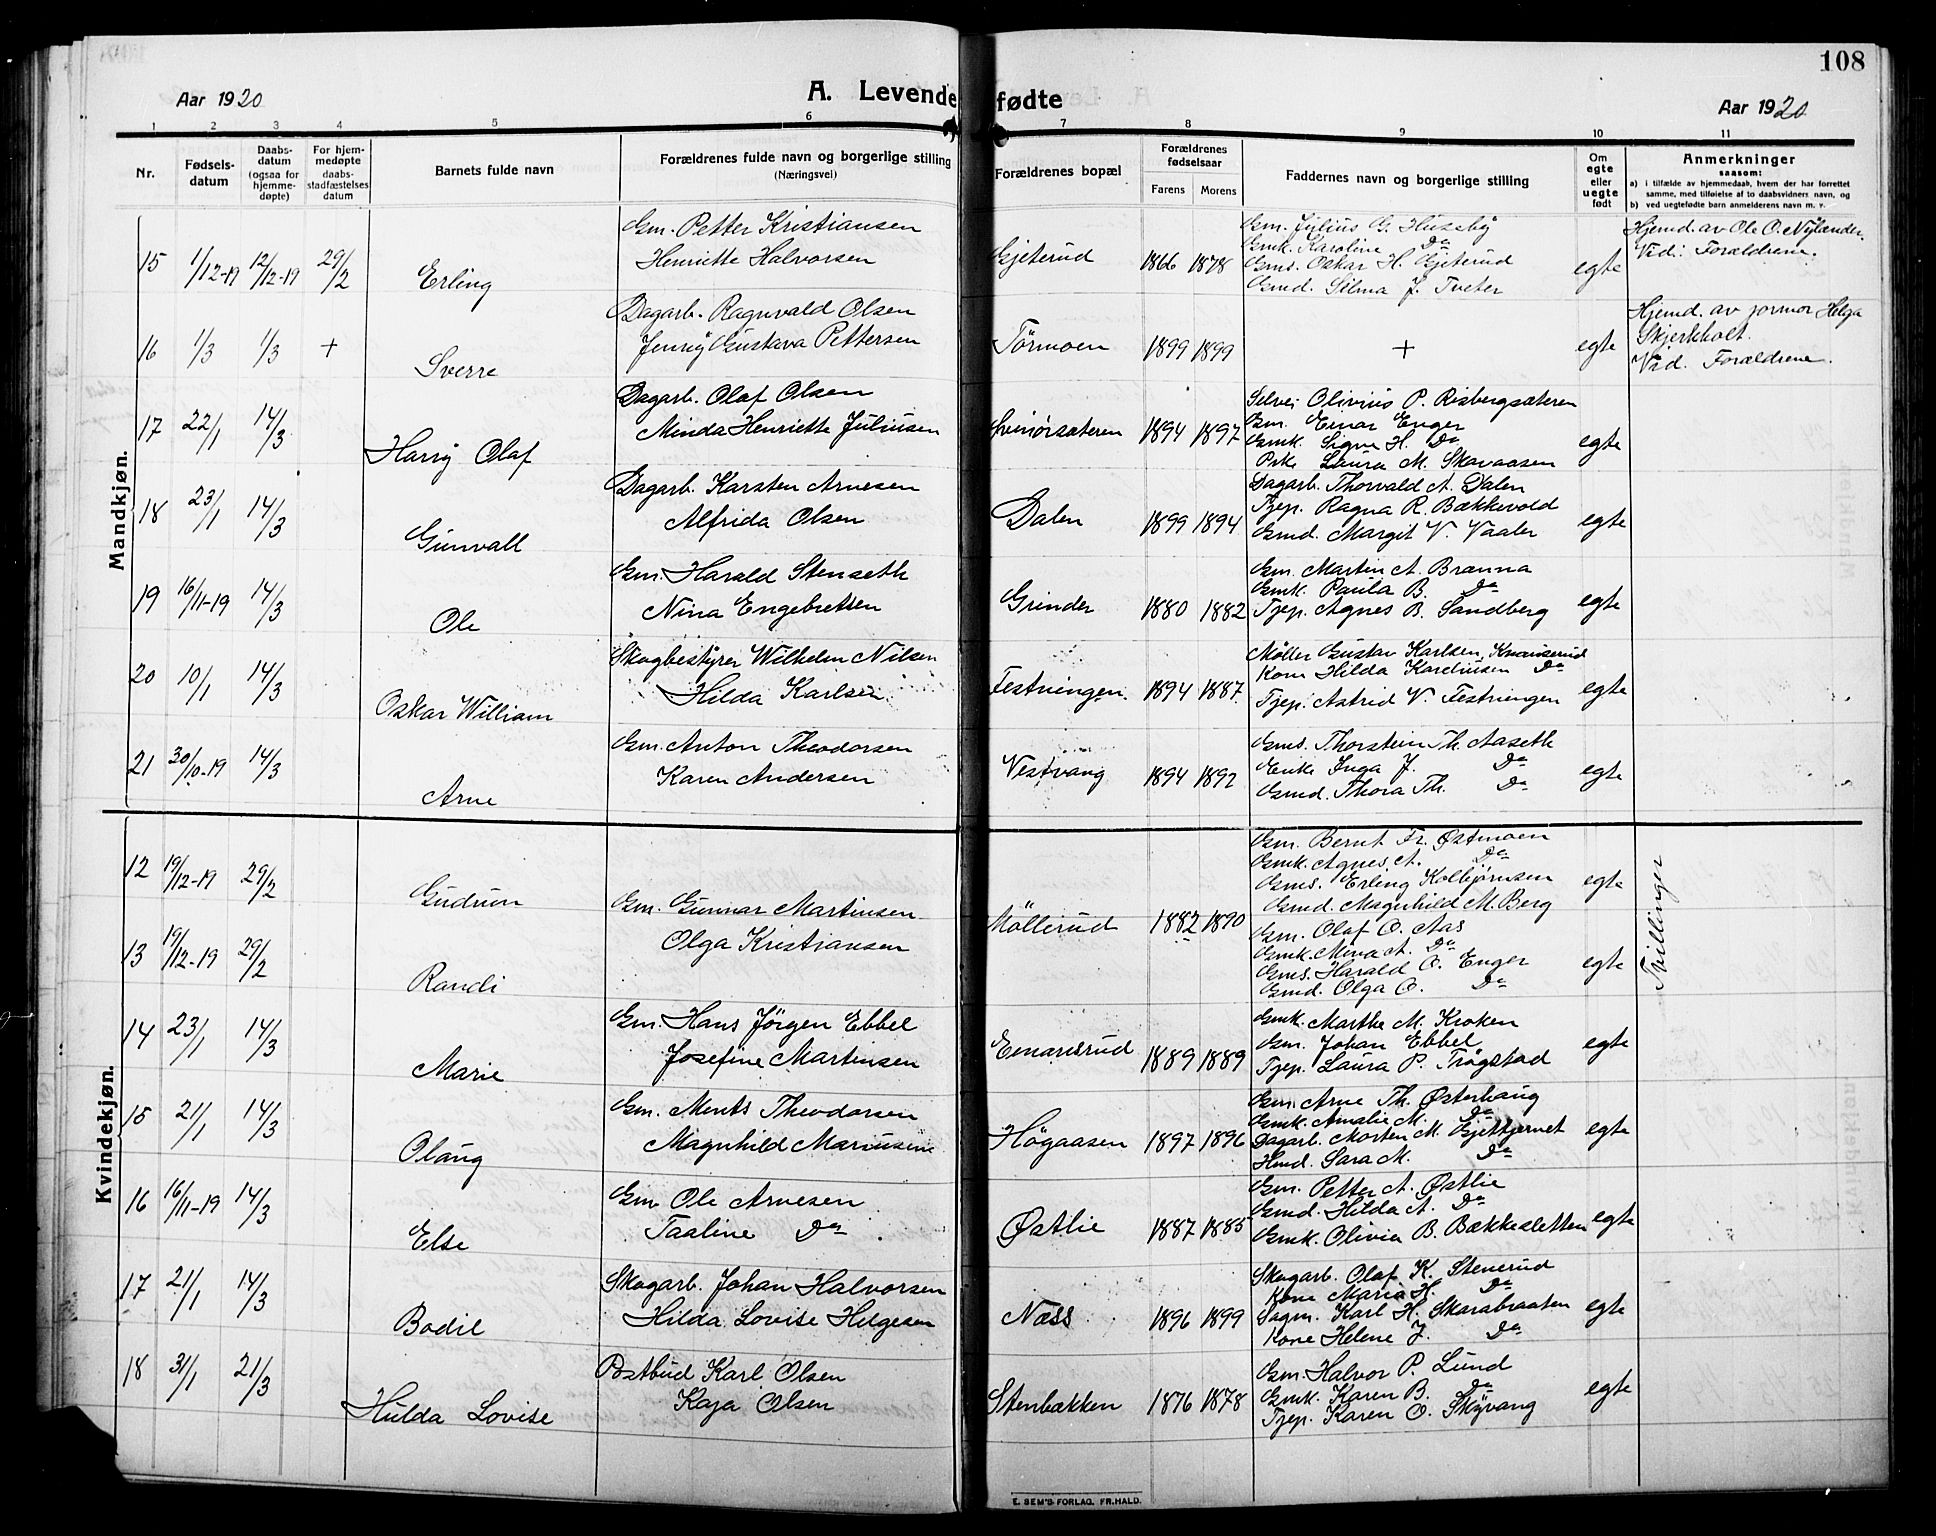 108
Aar 1920
A. Levendefødte
Aar 1920
1 2 3 4 5 6 7 8 9 10 11
Nr.
Fødsels-
datum
Daabs-
datum
(ogsaa for
hjemme-
døpte)
For hjem-
medøpte
daabs-
stadfæstelses
datum
Barnets fulde navn
Forældrenes fulde navn og borgerlige stilling
(Næringsvei)
Forældrenes bopæl
Forældrenes
fødselsaar
Farens Morens
Faddernes navn og borgerlige stilling
Om
egte
eller
uegte
født
Anmerkninger
saasom:
a) i tilfælde av hjemmedaab, hvem der har forrettet
samme, med tilføielse af to daabsvidners navn, og
b) ved uegtefødte barn anmelderens navn m. v.
Mandkjøn.
15 1/12-19 12/12-19 29/2 Erling
Gm. Petter Kristiansen
Henriette Halvorsen
Gjeterud 1866 1878
Gm. Julius G. Huseby
Gmk. Karoline Do
Gms. Oskar H. Gjeterud
Gmd. Silma J. Tveter
egte
Hjemd. av Ole O. Nylænder.
Vid: Forældrene.
16 1/3 1/3 + Sverre
Dagarb. Ragnvald Olsen
Jenny Gustava Pettersen
Tørmoen 1899 1899 + egte
Hjemd. av jormor Helga
Skjerkholt.
Vid. Forældrene.
17 22/1 14/3 Harry Olaf
Dagarb. Olaf Olsen
Minda Henriette Juliusen
1894 1897
Selvei Olivius P. Risbergsæteren
Gm. Einar Enger
Gmk. Signe H. Do
Laura M. Skavaasen
egte
18 23/1 14/3 Gunvall
Dagarb. Karsten Arnesen
Alfrida Olsen
Dalen 1899 1894
Dagarb. Thorvald A. Dalen
Tjep. Ragna R. Bækkevold
Gmd. Margit V. Vaaler
egte
19 16/11-19 14/3 Ole
Gm. Harald Stenseth
Nina Engebretsen
Grinder 1880 1882
Gm. Martin A. Brænna
Gmk. Paula B. Do
Tjep. Agnes B. Sandberg
egte
20 10/1 14/3 Oskar William
Skogbestyrer Wilhelm Nilsen
Hilda Karlsen
Festningen 1894 1887.
Møller Gustav Karlsen,
Kone Hilda Do
Tjep. Astrid V. Festningen
egte
21 30/10-19 14/3 Arne
Gm. Anton Theodorsen
Karen Andersen
Vestvang 1894 1892
Gms. Thorstein Th. Aaseth
Enke Inga J. Do
Gmd. Thora Th. Do
egte
Kvindekjøn.
12 19/12-19 29/2 Gudrun
Gm. Gunnar Martinsen
Olga Kristiansen
Møllerud 1882 1890
Gm. Bernt Fr. Østmoen
Gmk. Agnes A. Do
Gms. Erling Kolbjørnsen
Gmd. Magnhild M. Berg
egte
Tvillinger
13 19/12-19 29/2 Randi
Gm. Olaf O. Aas
Gmk. Mina A. Do
Gms. Harald O. Enger
Gmd. Olga O. Do
egte
14 23/1 14/3 Marie
Gm. Hans Jörgen Ebbel
Josefine Martinsen
Einarsrud 1889 1889
Gmk. Marthe M. Kroken
Gm. Johan Ebbel
Tjep. Laura P. Trøgstad
egte
15 21/1 14/3 Olaug
Gm. Ments Theodorsen
Magnhild
Høgaasen 1897 1896
Gm. Arne Th. Østerhaug
Gmk. Amalie M. Do
Dagarb. Morten M. Gjettjernet
Hmd. Sara M. Do
egte
16 16/11-19 14/3 Else
Gm Ole Arnesen
Taaline Do
Østlie 1887 1885
Gm. Petter A. Østlie
Gmd. Hilda A. Do
Gmk. Olivia B. Bækkesletten
egte
17 21/1 14/3 Bodil
Skogarb. Johan Halvorsen
Hilda Lovise Helgesen
Næss 1896 1899
Skogarb. Olaf K. Stenerud
Kone Maria H. Do
Sagm. Karl H. Skarabraaten
Kone Helene J. Do
egte
18 31/1 21/3 Hulda Lovise
Postbud Karl Olsen
Kaja Olsen
Stenbakken 1876 1878
Gm. Halvor P. Lund
Gmk. Karen B. Do
Tjep. Karen O. Skyvang
egte
E. SEM'S FORLAG, FR.HALD.